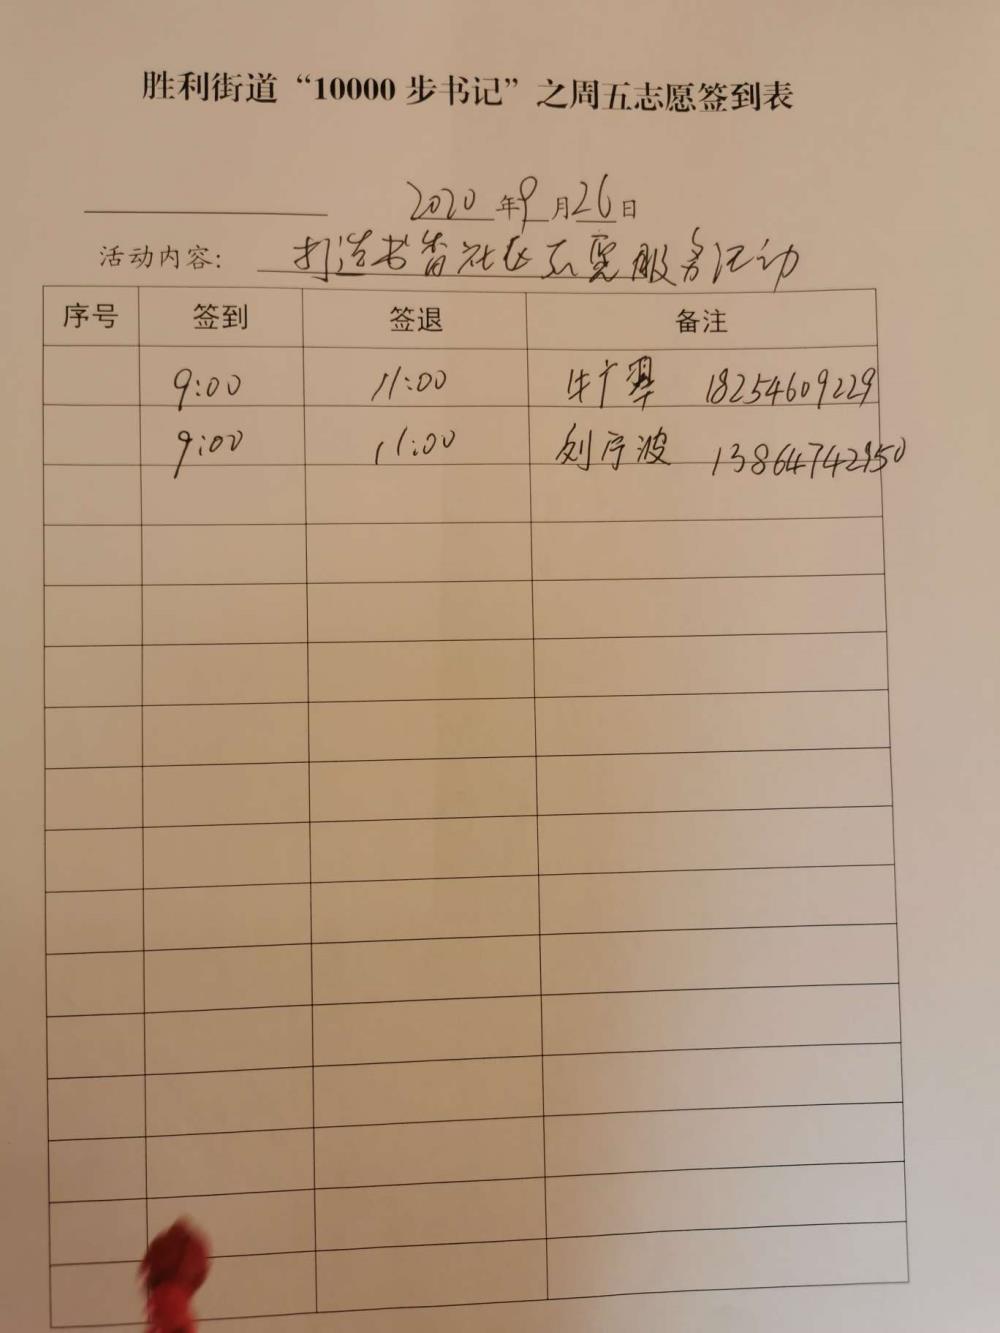 胜利街道“10000步书记”之周五志愿签到表
2020年9月26日
活动内容: 打造书香社区志愿服务活动
序号 签到 签退 备注
9:00 11:00 牛广 18254609229
9:00 11:00 刘宁波 13864742950